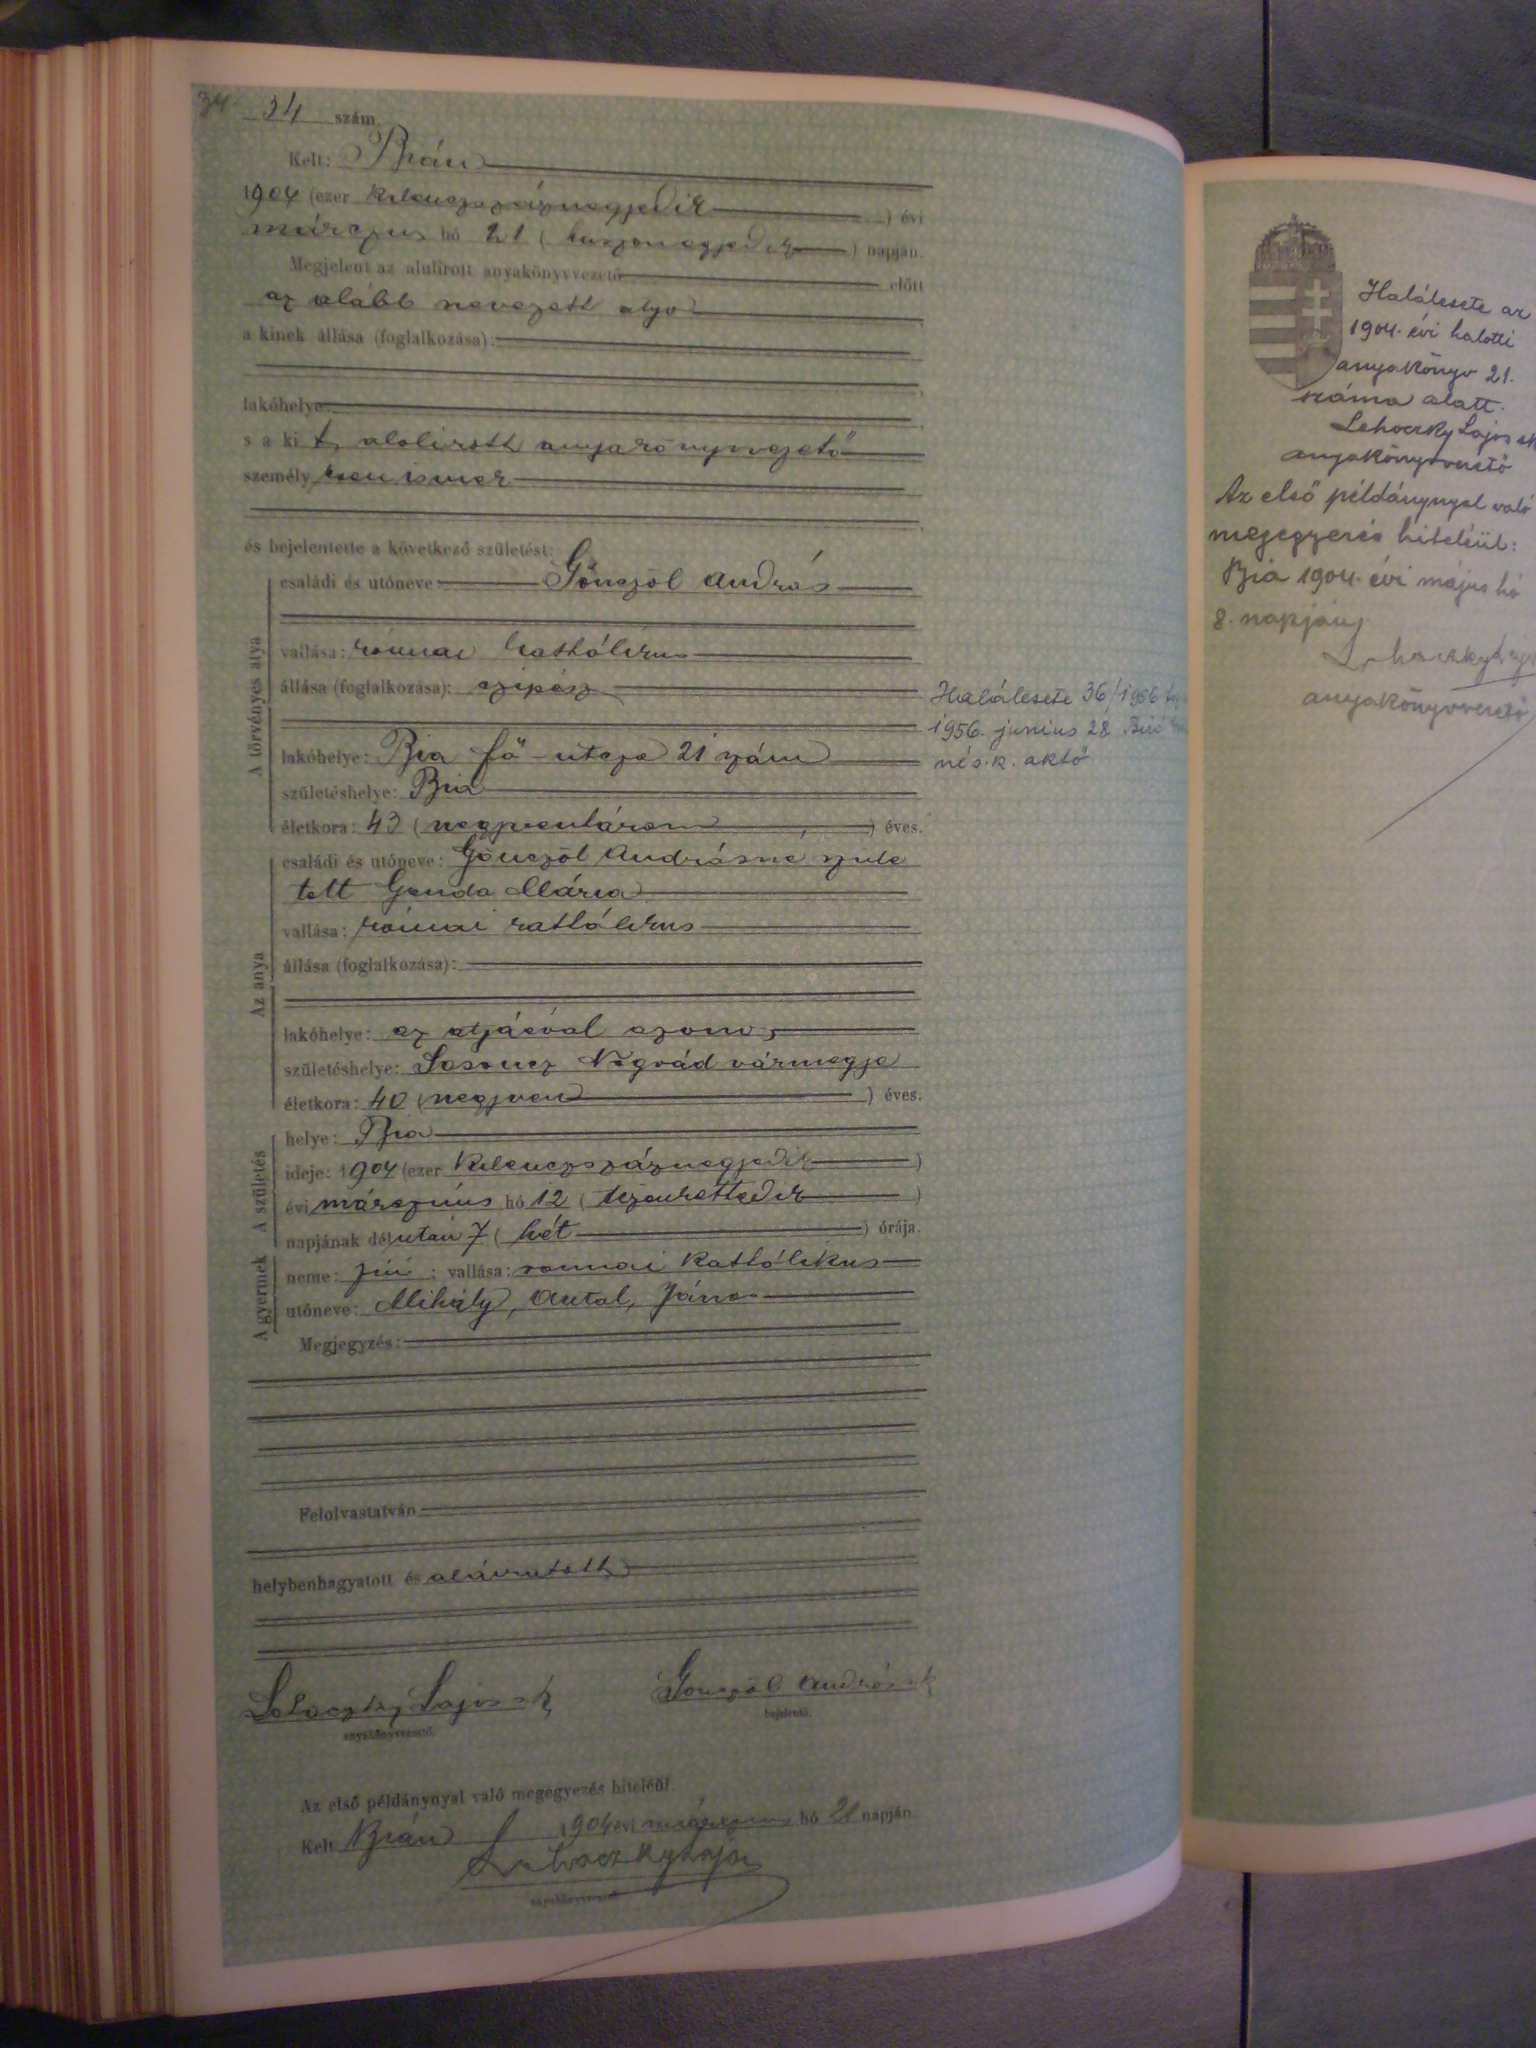 34 szám
Kelt: Bián
1904 (ezer kilenczszáznegyedik ) évi
márczius hó 21 ( huszonegyedik ) napján.
Megjelent az alulirott anyakönyvvezető előtt
az alább nevezett atya
a kinek állása (foglalkozása):
lakóhelye
s a ki t, alolirott anyakönyvvezető
személyesen ismer
és bejelentette a következő születést:
A törvényes atya
családi és utóneve Gönczöl András
vallása: római katholikus
állása (foglalkozása): czipész
lakóhelye: Bia fő-utcza 21 szám
születéshelye: Bia
életkora: 43 (negyvenhárom ) éves.
Az anya
családi és utóneve: Gönczöl Andrásné szüle
tett Genda Mária
vallása: római katholikus
állása (foglalkozása):
lakóhelye: az atjáéval azonos
születéshelye: Losoncz Nógrád vármegye
életkora: 40 (negyven ) éves.
A születés
helye: Bia
ideje: 1904 (ezer kilenczszáznegyedik )
évi márczius hó 12 ( tizenkettedik )
napjának délután 7 ( hét ) órája.
A gyermek
neme: fiú ; vallása: római katholikus
utóneve: Mihály, Antal, János
Megjegyzés:
Felolvastatván
helybenhagyatott és aláiratott
Lehoczky Lajos sk
anyakönyvvezető.
Gönczöl András sk
bejelentő.
Az első példánynyal való megegyezés hiteléül.
Kelt Bián 1904 évi márczius hó 21 napján.
Lehoczky Lajos
anyakönyvvezető
Halálesete 36/1956
1956. junius 28
né s.k. aktő
Halálesete az
1904. évi halotti
anyakönyv 21.
száma alatt.
Lehoczky Lajos sk
anyakönyvvezető
Az első példánynyal való
megegyezés hiteléül:
Bia 1904. évi május hó
8. napján
Lehoczky Lajos
anyakönyvvezető